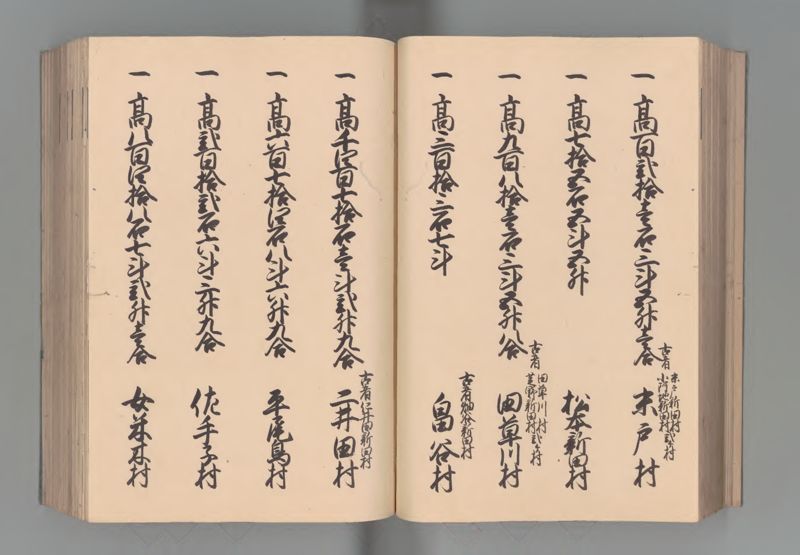 一 高百弐拾壱石三斗五升壱合 末戸村
古者 末々新田村
小阿地新田村弐ヶ村
一 高七拾五石五斗五升 松本新田村
一 高九百八拾壱石三斗五升八合 田草川村
古者 田草川村
芝野新田村弐ヶ村
一 高三百拾三石七斗 畠谷村
古者畑谷新田村
一 高千四百七拾石壱斗弐升九合 二井田村
古者仁井田新田村
一 高六百七拾四石八斗六升九合 平尾鳥村
一 高弐百拾弐石六斗三升九合 佐手子村
一 高八百四拾八石七斗弐升壱合 女米木村